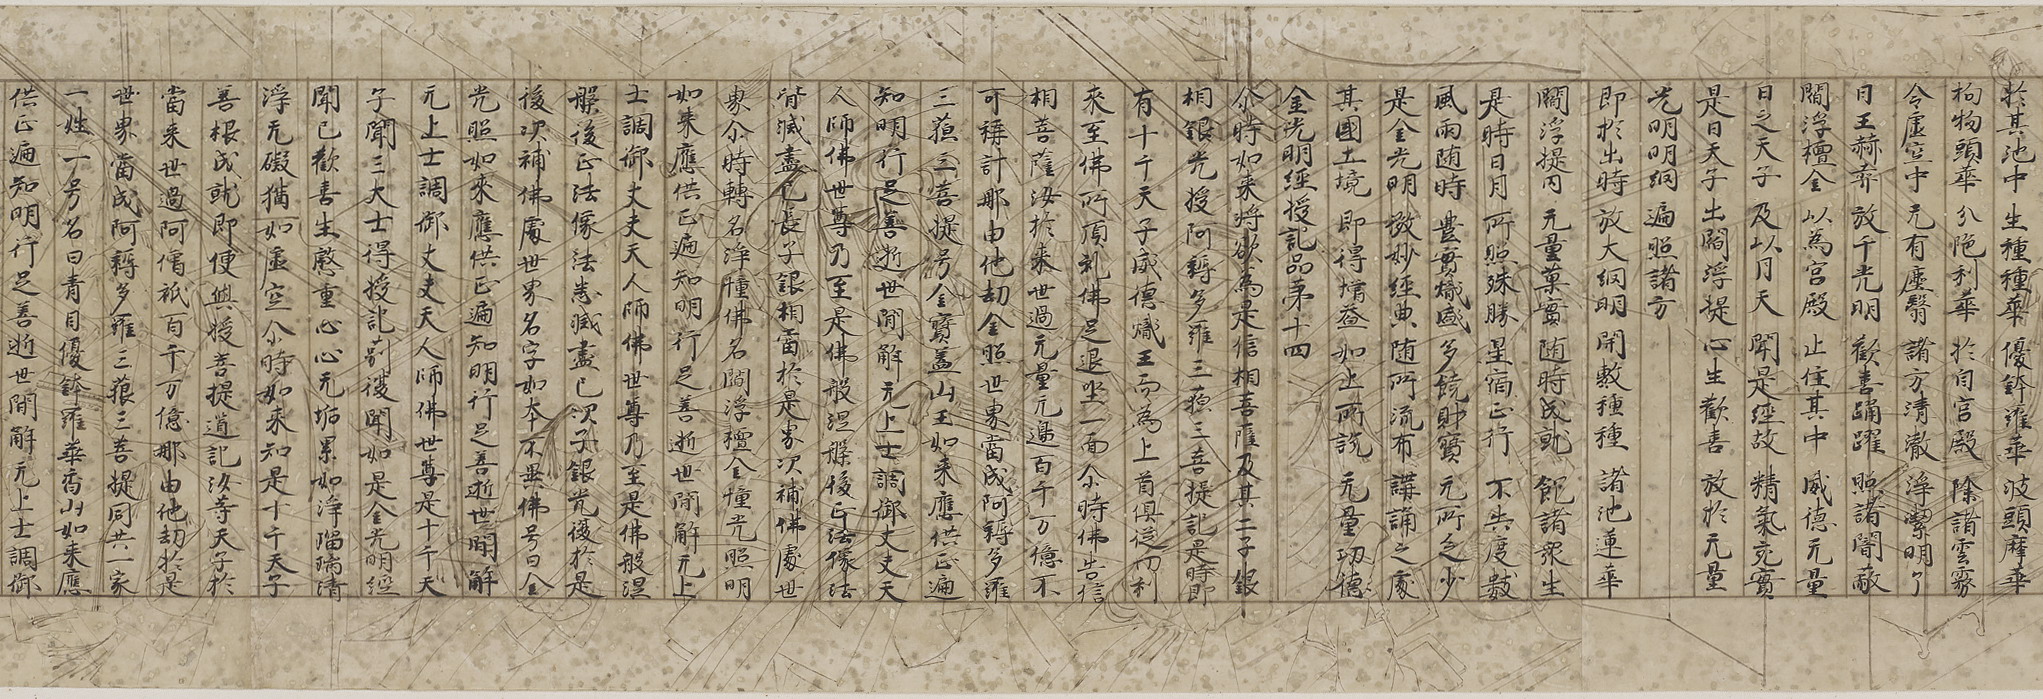 於其池中 生種種華 優鉢羅華 波頭摩華
拘物頭華 分陀利華 於自宮殿 除諸雲霧
令虛空中 无有塵翳 諸方清澈 淨潔明了
日王赫弈 放千光明 歡喜踊躍 照諸闇蔽
閻浮檀金 以為宮殿 止住其中 威德无量
日之天子 及以月天 聞是經故 精氣充實
是日天子 出閻浮提 心生歡喜 放於无量
光明明網 遍照諸方
即於出時 放大網明 開敷種種 諸池蓮華
閻浮提內 无量菓實 随時成就 飽諸衆生
是時日月 所照殊勝 星宿正行 不失度數
風雨随時 豊實熾盛 多饒財寶 无所乏少
是金光明 微妙經典 随所流布 講誦之處
其國土境 即得增益 如上所說 无量功德
金光明經授記品第十四
尒時如来將欲為是信相菩薩及其二子銀
相銀光授阿耨多羅三藐三菩提記是時即
有十千天子威德熾王而為上首俱従忉利
來至佛所頂礼佛足退坐一面尒時佛告信
相菩薩汝於来世過无量无邊百千万億不
可稱計那由他劫金照世界當成阿耨多羅
三藐三菩提号金寶蓋山王如来應供正遍
知明行足善逝世間解无上士調御丈夫天
人師佛世尊乃至是佛般涅槃後正法像法
皆滅盡已長子銀相當於是界次補佛處世
界尒時轉名淨幢佛名閻浮檀金幢光照明
如来應供正遍知明行足善逝世間解无上
士調御丈夫天人師佛世尊乃至是佛般涅
槃後正法像法悉滅盡已次子銀光復於是
後次補佛處世界名字如本不異佛号曰金
光照如來應供正遍知明行足善逝世間解
无上士調御丈夫天人師佛世尊是十千天
子聞三大士得授記莂復聞如是金光明經
聞已歡喜生慇重心心无垢累如淨瑠璃清
浮无礙猶如虛空尒時如来知是十千天子
善根成就即便與授菩提道記汝等天子於
當来世過阿僧祇百千万億那由他劫於是
世界當成阿耨多羅三藐三菩提同共一家
一姓一号名曰青目優鉢羅華香山如来應
供正遍知明行足善逝世間解无上士調御